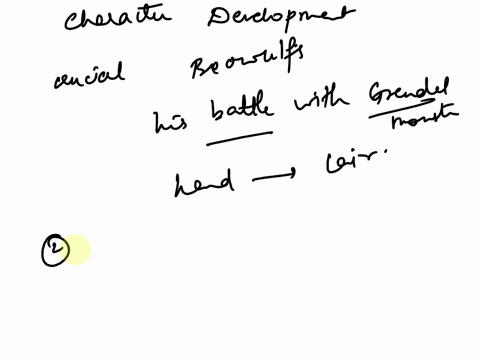 Character Development
crucial Beowulfs
his battle with Grendel
monster
hand → lair.
②